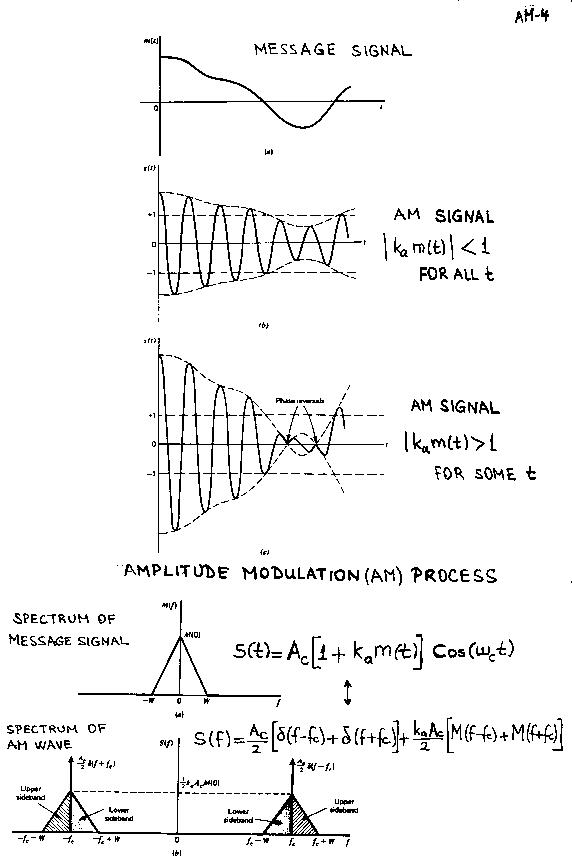 AM-4
m(t)
MESSAGE SIGNAL
0
t
(a)
s(t)
+1
0
−1
t
AM SIGNAL
|kₐm(t)| < 1
FOR ALL t
(b)
s(t)
Phase reversals
+1
0
−1
t
AM SIGNAL
|kₐm(t)>1
FOR SOME t
(c)
AMPLITUDE MODULATION (AM) PROCESS
SPECTRUM OF
MESSAGE SIGNAL
M(f)
M(0)
−W 0 W f
(a)
S(t)=A_c[1 + kₐm(t)] Cos(ω_ct)
↕
SPECTRUM OF
AM WAVE
S(f) = A_c/2 [δ(f-f_c)+δ(f+f_c)]+ kₐA_c/2 [M(f-f_c)+M(f+f_c)]
S(f)
A_c/2 δ(f + f_c)
A_c/2 δ(f − f_c)
½kₐA_cM(0)
Upper
sideband
Lower
sideband
Lower
sideband
Upper
sideband
−f_c − W −f_c −f_c + W 0 f_c − W f_c f_c + W f
(b)